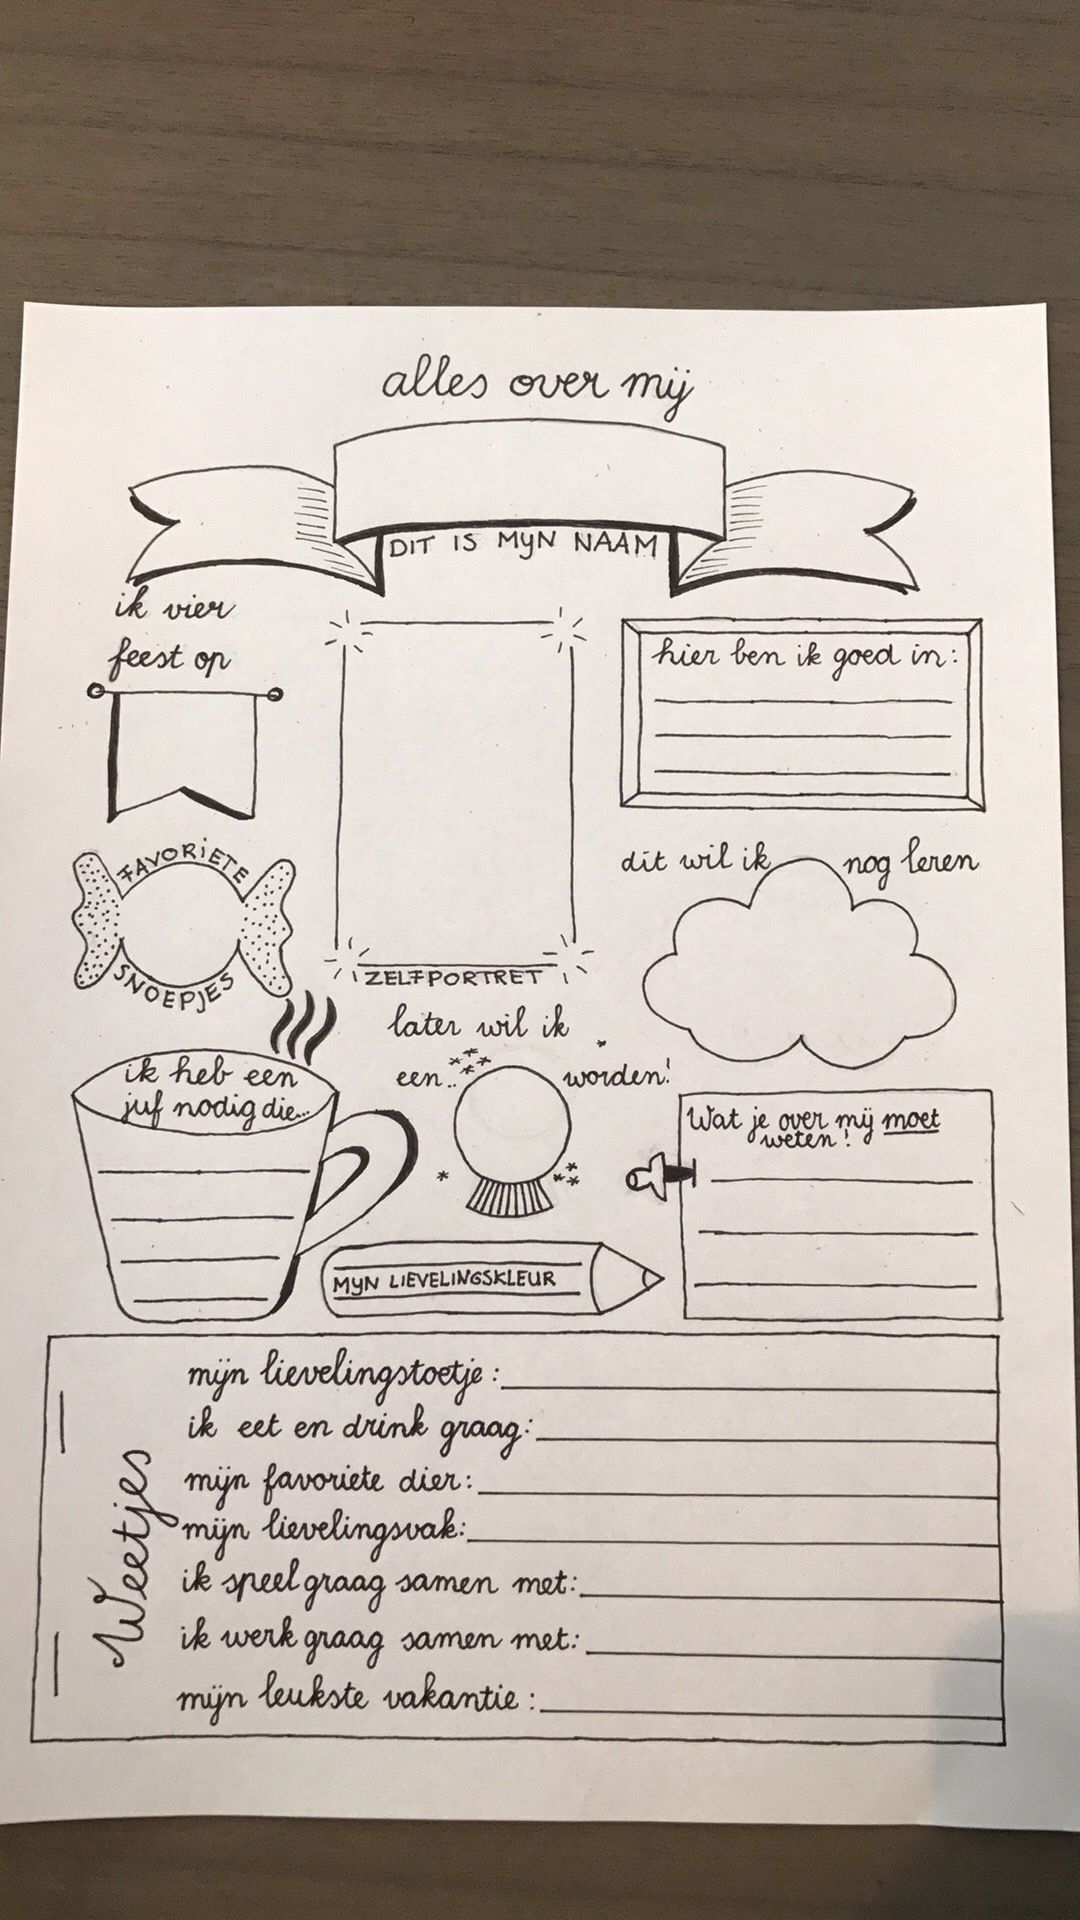 alles over mij
DIT IS MIJN NAAM
ik vier
feest op
hier ben ik goed in:
FAVORIETE
SNOEPJES
ZELFPORTRET
dit wil ik nog leren
later wil ik
een.. worden!
ik heb een
juf nodig die...
Wat je over mij moet
weten!
MIJN LIEVELINGSKLEUR
Weetjes
mijn lievelingstoetje:
ik eet en drink graag:
mijn favoriete dier:
mijn lievelingsvak:
ik speel graag samen met:
ik werk graag samen met:
mijn leukste vakantie: